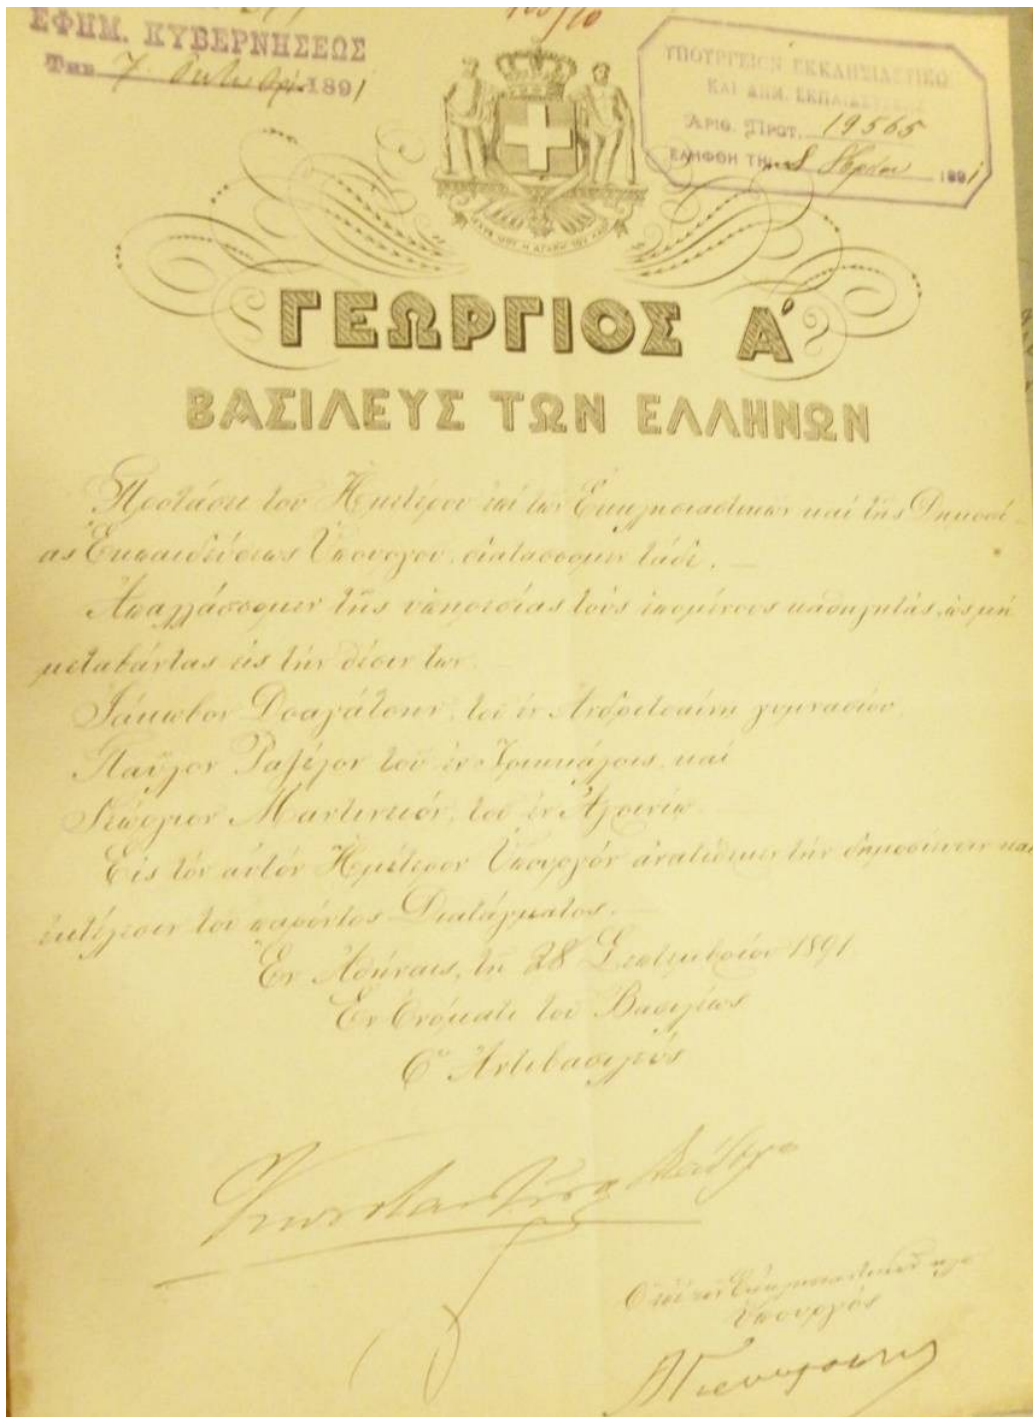 ΕΦΗΜ. ΚΥΒΕΡΝΗΣΕΩΣ
Την 7 Οκτωβρ. 1891
ΥΠΟΥΡΓΕΙΟΝ ΕΚΚΛΗΣΙΑΣΤΙΚΩ
ΚΑΙ ΔΗΜ. ΕΚΠΑΙΔΕΥΣΕΩΣ
ΑΡΙΘ. ΠΡΩΤ. 19565
ΕΛΗΦΘΗ ΤΗΝ 1891
ΓΕΩΡΓΙΟΣ Α'
ΒΑΣΙΛΕΥΣ ΤΩΝ ΕΛΛΗΝΩΝ
Προτάσει του Ημετέρου επί των Εκκλησιαστικών και της Δημοσί-
ας Εκπαιδεύσεως Υπουργού, διατάσσομεν τάδε.—
Απαλλάσσομεν της υπηρεσίας τους επομένους καθηγητάς, ως μη
μεταβάντας εις την θέσιν των.
Ιάκωβον Δραγάτσην, του εν Ανδριτσαίνη γυμνασίου,
Παύλον του εν Τρικκάλοις, και
Γεώργιον, του εν Αγρινίω
Εις τον αυτόν Ημέτερον Υπουργόν ανατίθεμεν την δημοσίευσιν και
εκτέλεσιν του παρόντος Διατάγματος.—
Εν Αθήναις, τη 28 Σεπτεμβρίου 1891
Εν Ονόματι του Βασιλέως
Ο Αντιβασιλεύς
Κωνσταντίνος
Ο επί των Εκκλησιαστικών κλπ
Υπουργός